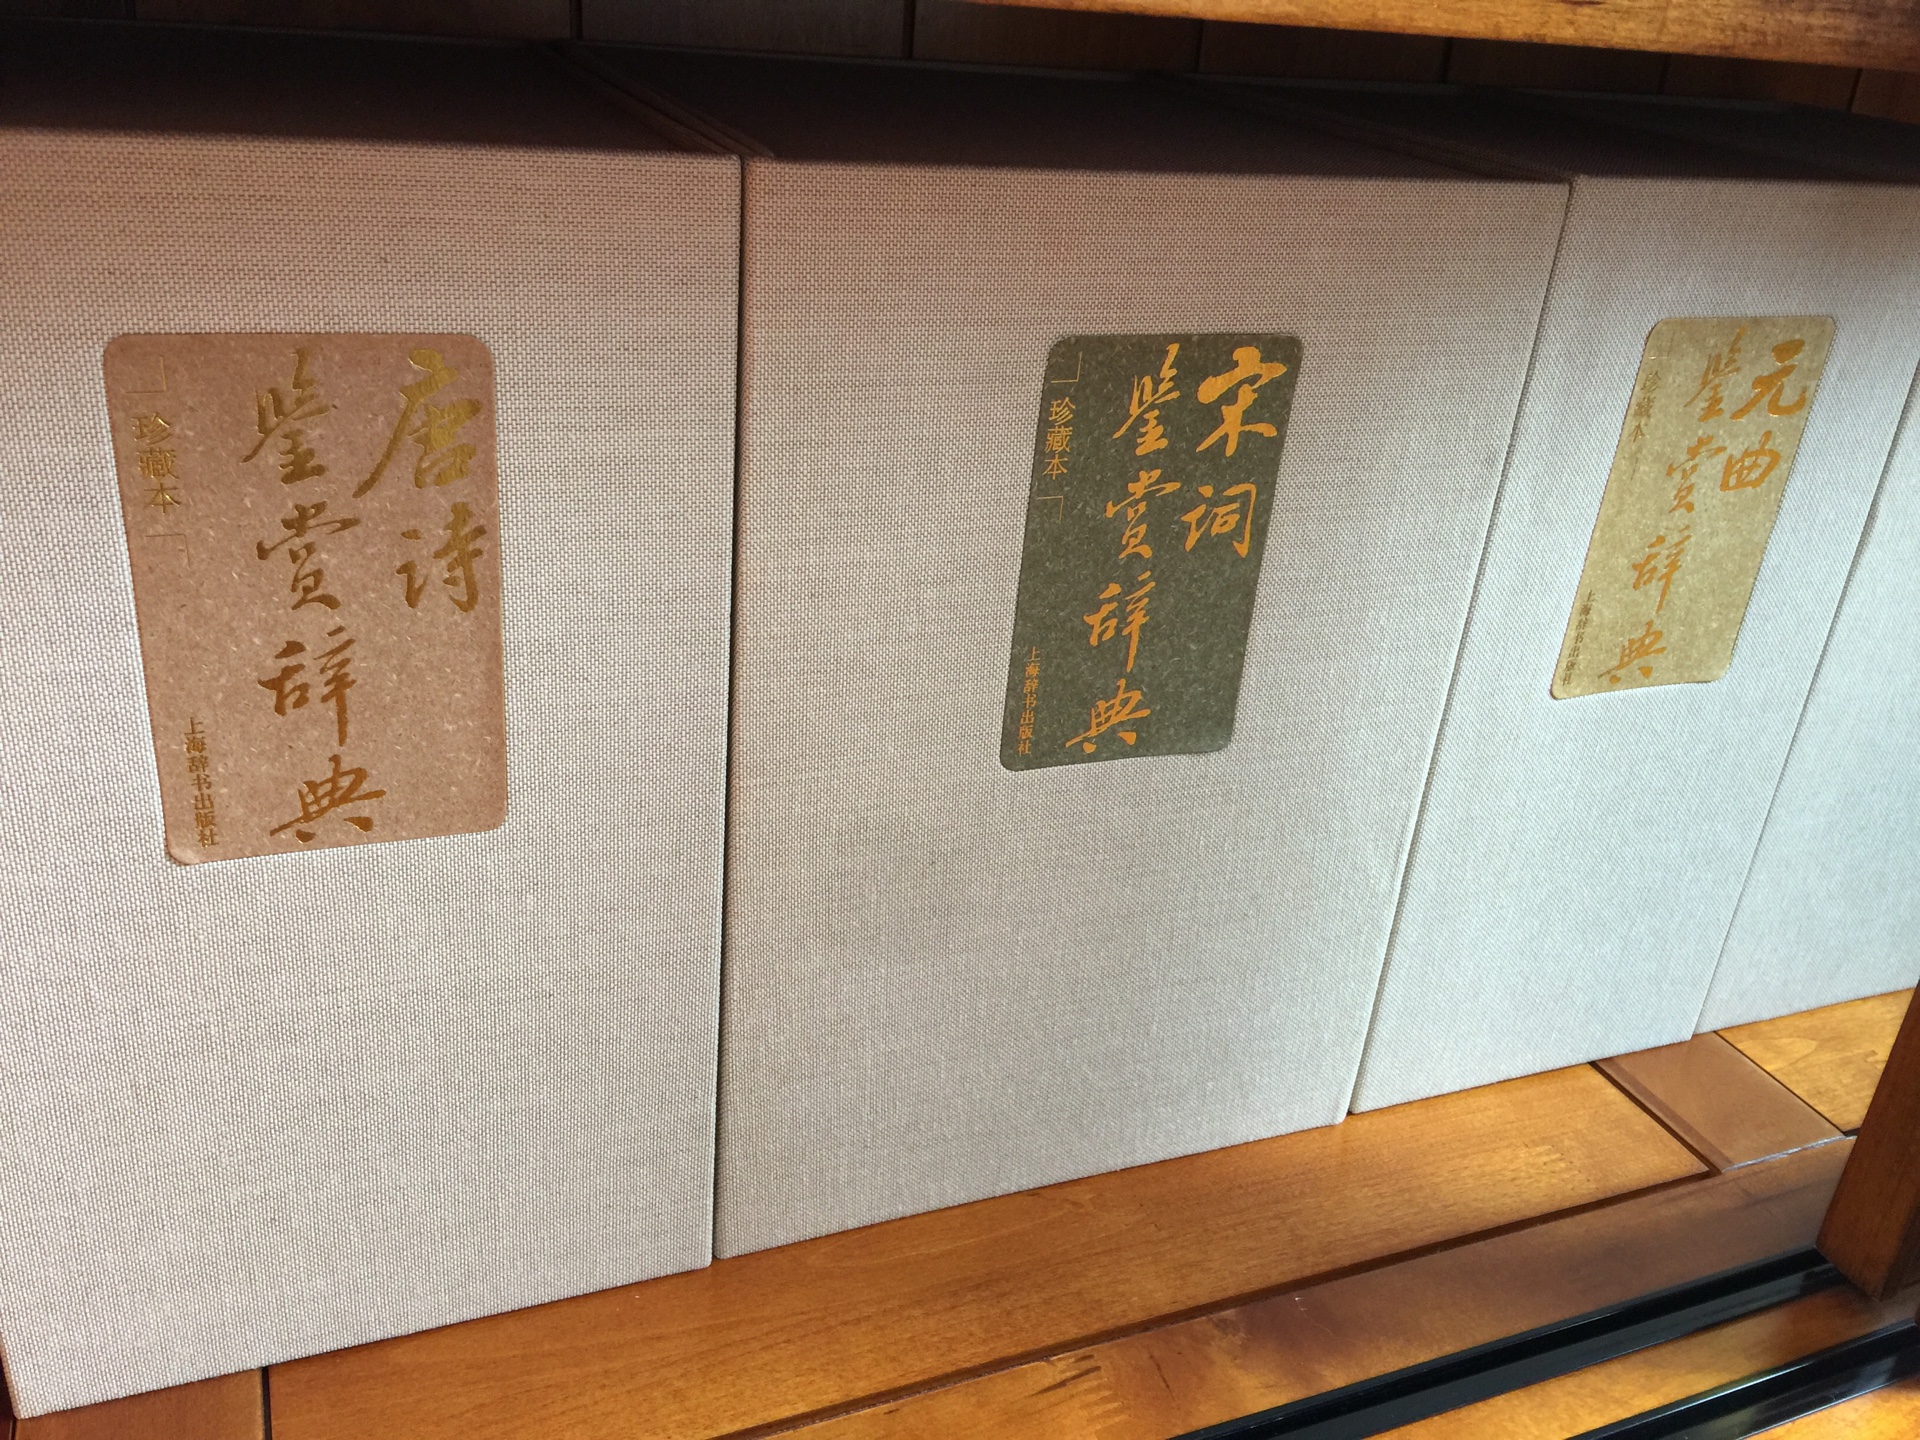 唐诗
鉴赏辞典
珍藏本
上海辞书出版社
宋词
鉴赏辞典
珍藏本
上海辞书出版社
元曲
鉴赏辞典
珍藏本
上海辞书出版社